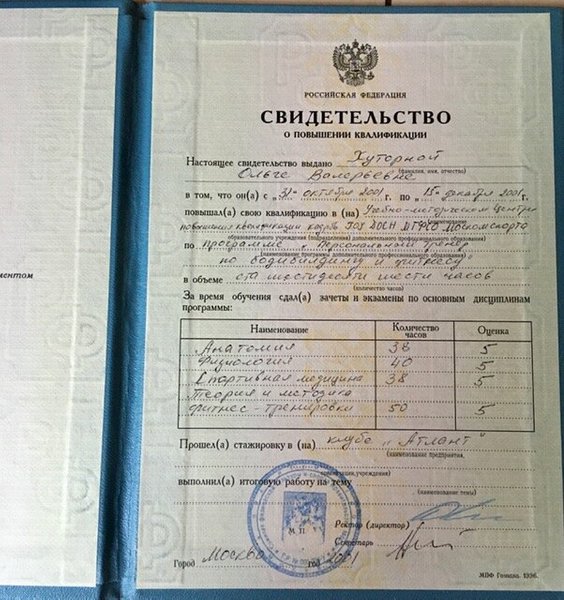 РОССИЙСКАЯ ФЕДЕРАЦИЯ
СВИДЕТЕЛЬСТВО
О ПОВЫШЕНИИ КВАЛИФИКАЦИИ
Настоящее свидетельство выдано Хуторной
(фамилия, имя, отчество)
Ольге Валерьевне
в том, что он(а) с „31" октября 2001г. по „15" декабря 2001г.
повышал(а) свою квалификацию в (на) Учебно-методическом Центре
(наименование
повышения квалификации кадров ДОСН Москомспорта
образовательного учреждения (подразделения) дополнительного профессионального образования)
по программе „Персональный тренер
(наименование программы дополнительного профессионального образования)
по бодибилдингу и фитнесу
в объеме ста шестидесяти шести часов
(количество часов)
За время обучения сдал(а) зачеты и экзамены по основным дисциплинам
программы:
Наименование Количество часов Оценка
Анатомия 38 5
Физиология 40 5
Спортивная медицина 38 5
Теория и методика
фитнес-тренировки 50 5
Прошел(а) стажировку в (на) клубе „Атлант"
(наименование предприятия,
организации, учреждения)
выполнил(а) итоговую работу на тему
(наименование темы)
М. П.
Ректор (директор)
Секретарь
Город Москва год 2001
МПФ Гознака. 1996.
ментом